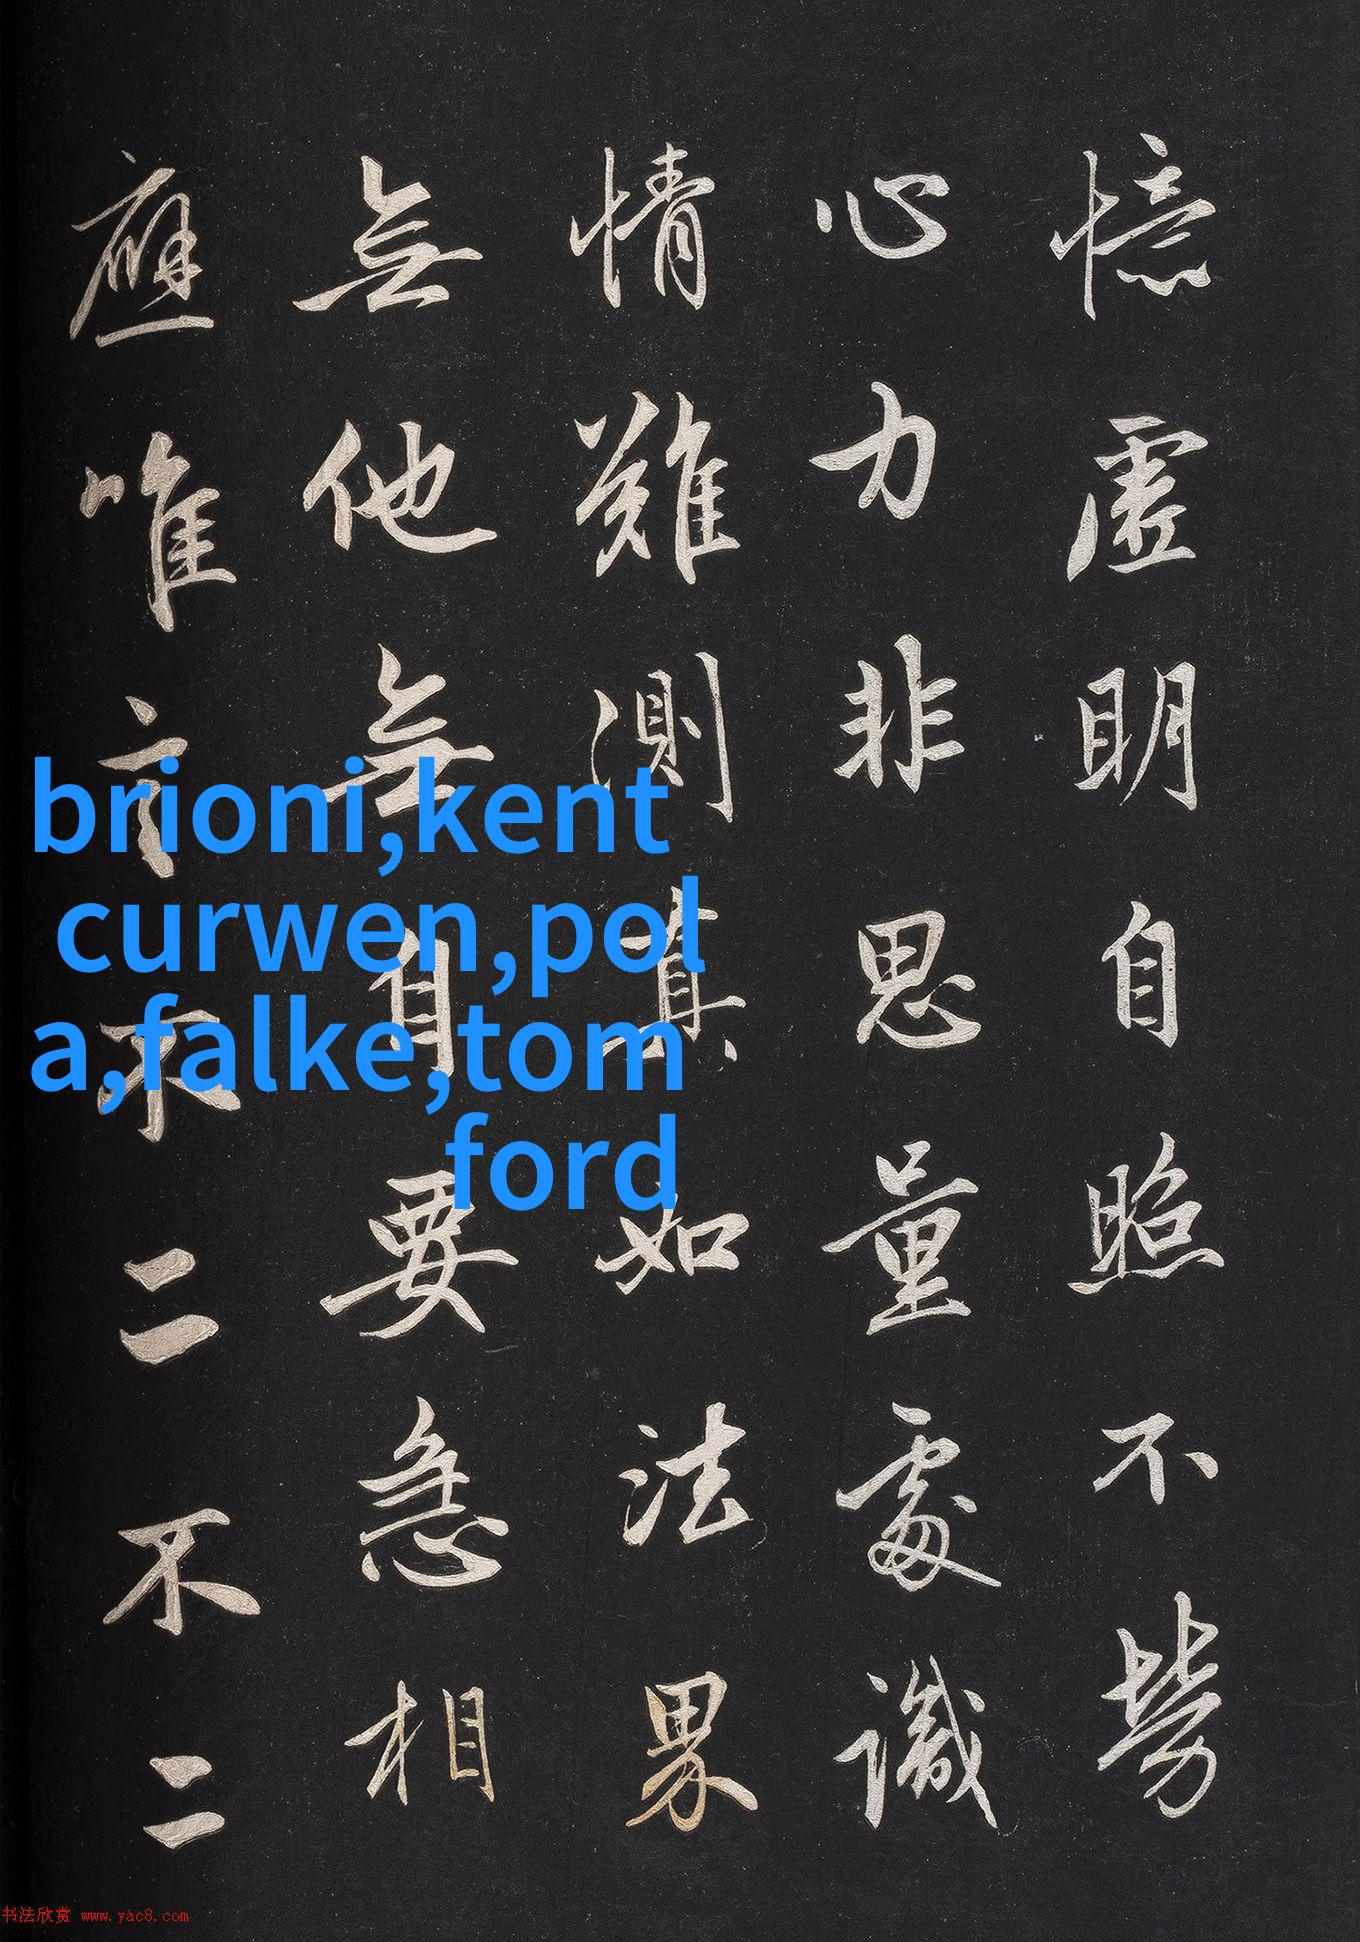 憶虛明自照不勞
心力非思量處識
情難測真如法界
無他無自要急相
應唯言不二不二
brioni,kent
curwen,pol
a,falke,tom
ford
书法欣赏 www.yac8.com